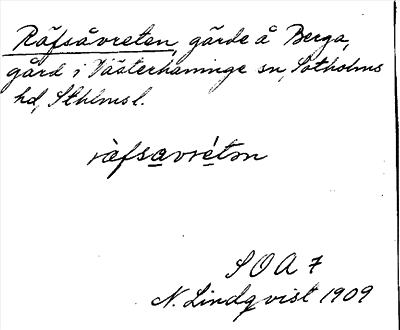 Räfsåvretan, gärde å Berga,
gård i Västerhaninge sn, Sotholms
hd, Sthlms l.
ràfsavréton
S O A 7
N. Lindqvist 1909